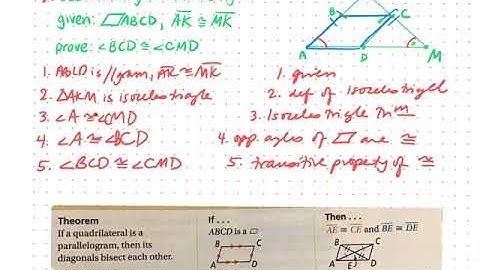 given: ▱ABCD, AK ≅ MK
prove: ∠BCD ≅ ∠CMD
B
C
A
D
M
1. ABCD is //gram, AK ≅ MK
1. given
2. △AKM is isosceles triagle
2. def of isosceles
3. ∠A ≅ ∠CMD
3. Isosceles triagle Thm
4. ∠A ≅ ∠BCD
4. opp. agles of ▱ are ≅
5. ∠BCD ≅ ∠CMD
5. transitive property of ≅
Theorem
If a quadrilateral is a
parallelogram, then its
diagonals bisect each other.
If . . .
ABCD is a ▱
B
C
A
D
Then . . .
AE ≅ CE and BE ≅ DE
B
C
A
E
D